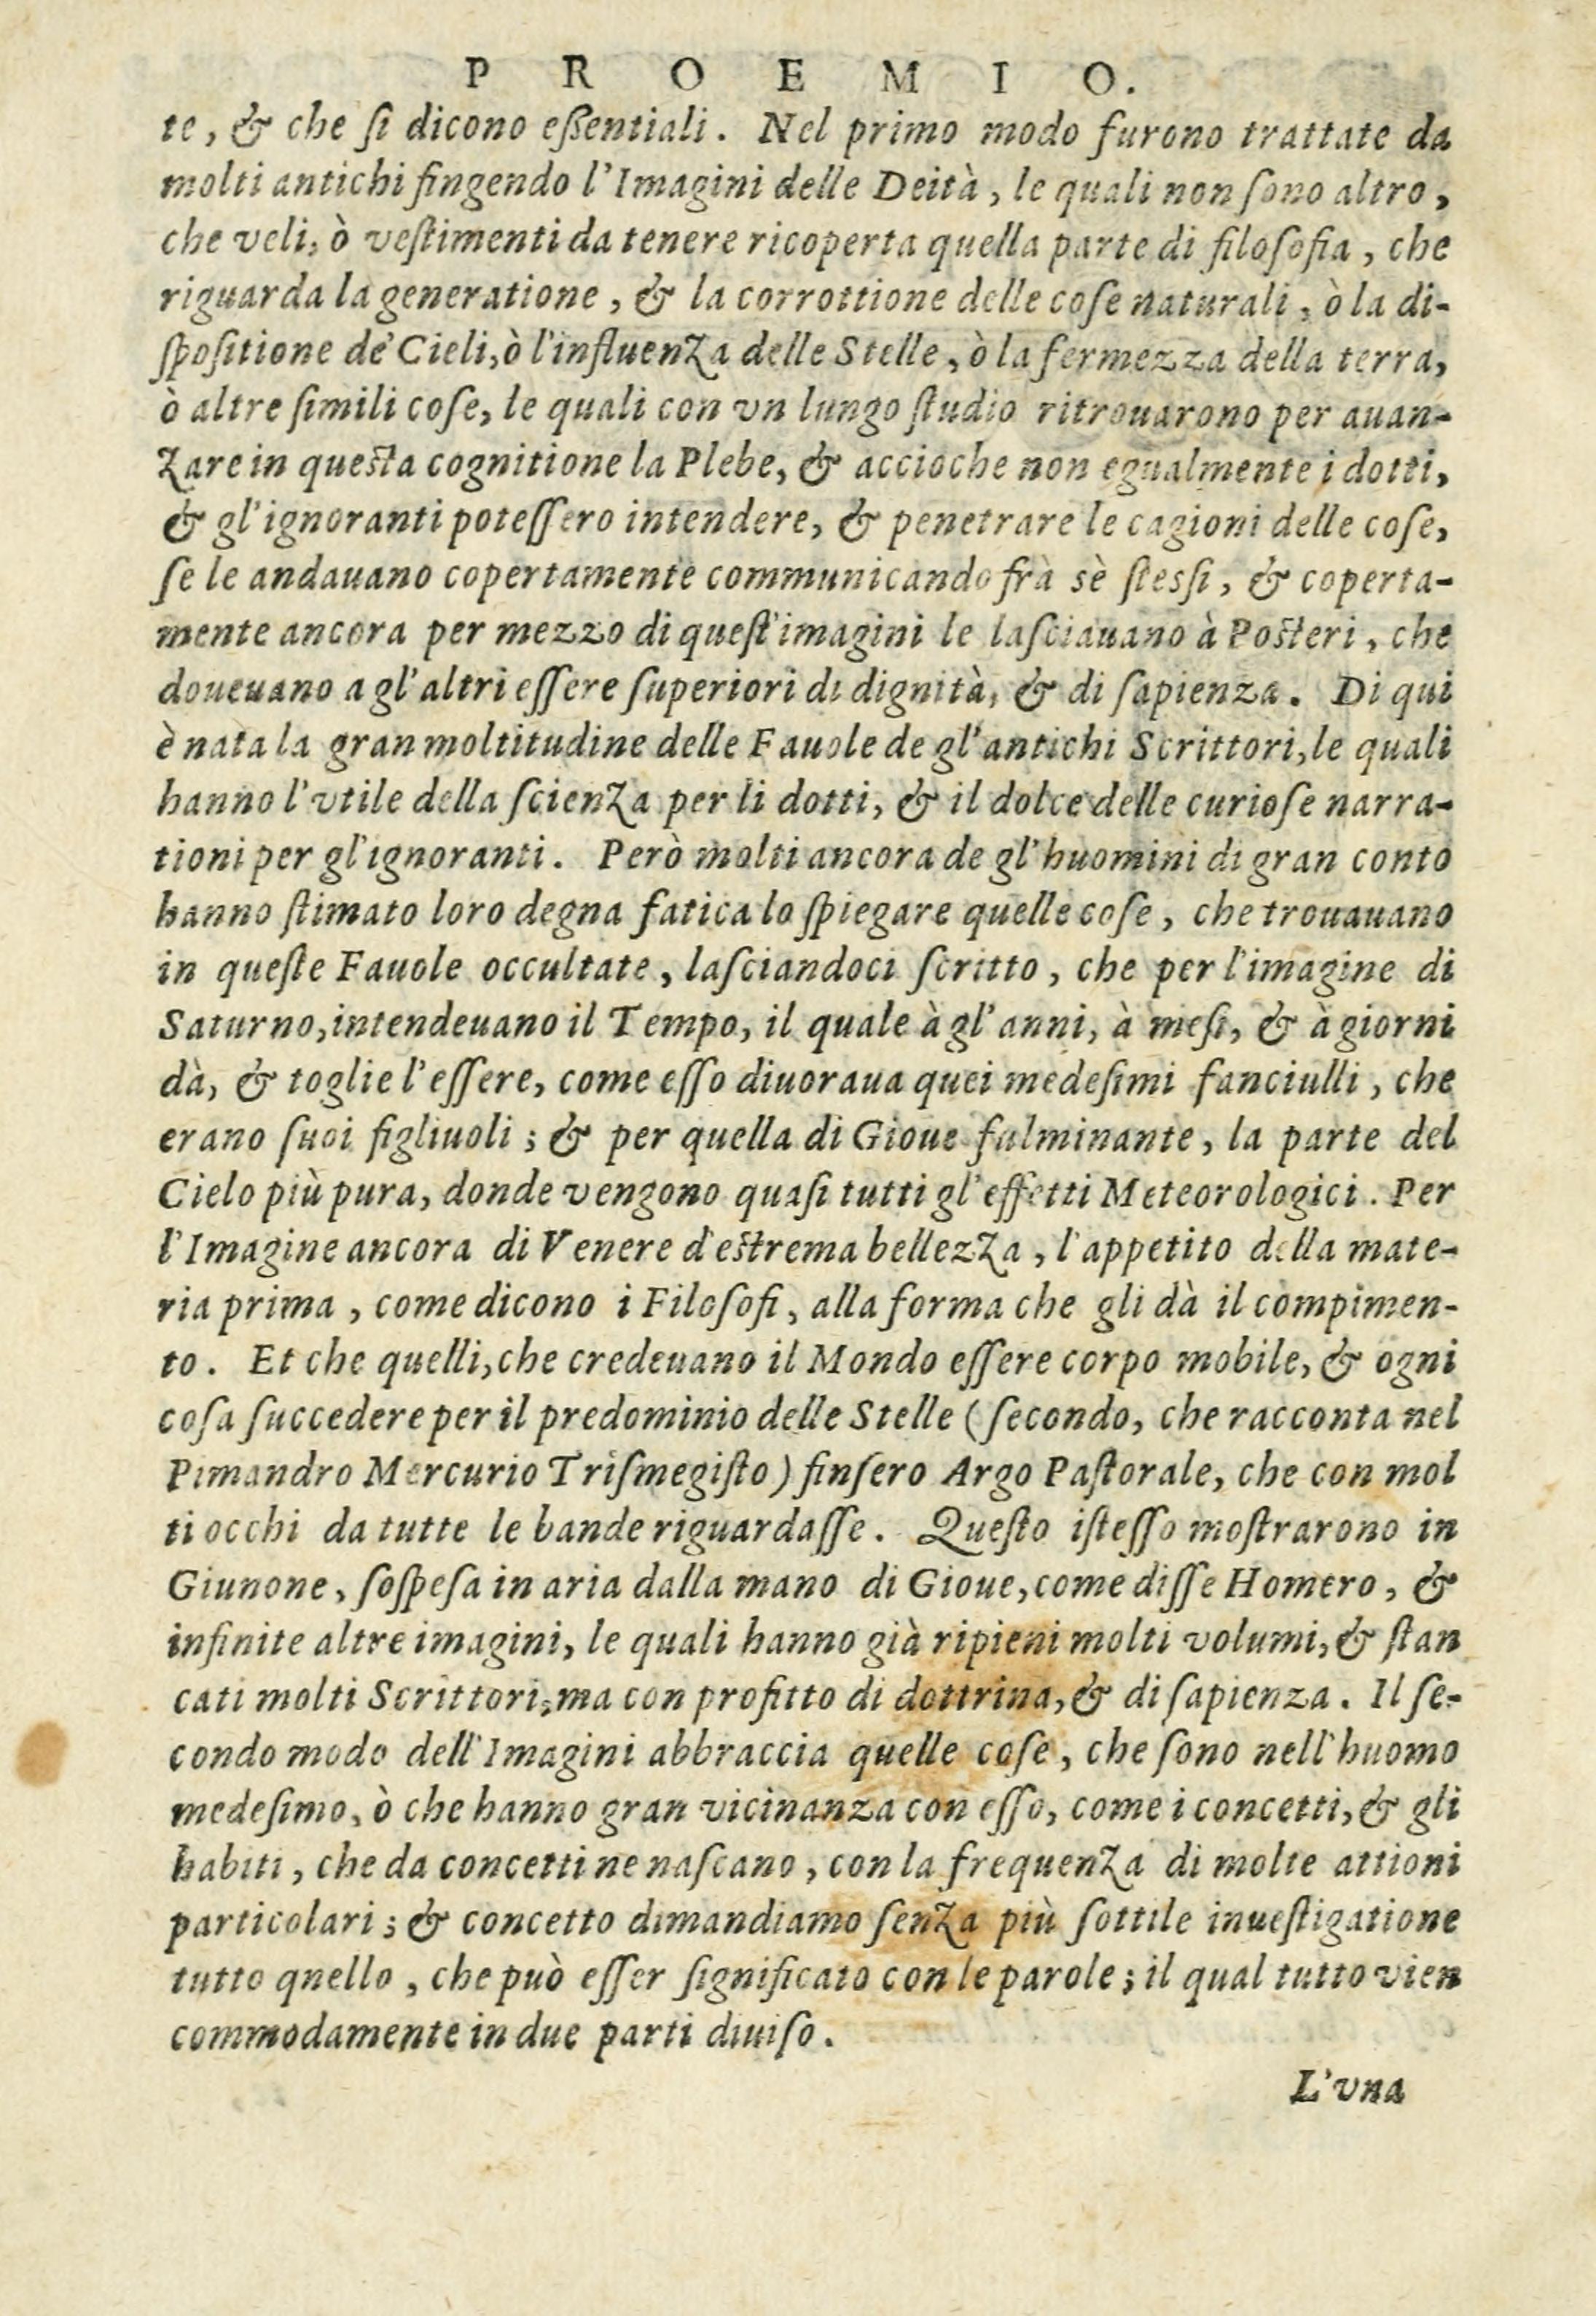 PROEMIO.
te, & che ſi dicono eßentiali. Nel primo modo furono trattate da
molti antichi fingendo l'Imagini delle Deità, le quali non ſono altro,
che veli, ò veſtimenti da tenere ricoperta quella parte di filoſofia, che
riguarda la generatione, & la corrottione delle coſe naturali, ò la di-
ſpoſitione de' Cieli, ò l'influenza delle Stelle, ò la fermezza della terra,
ò altre ſimili coſe, le quali con vn lungo ſtudio ritrouarono per auan-
zare in queſta cognitione la Plebe, & accioche non egualmente i dotti,
& gl'ignoranti poteſſero intendere, & penetrare le cagioni delle coſe,
ſe le andauano copertamente communicando frà sè steſſi, & coperta-
mente ancora per mezzo di queſt'imagini le laſciauano à Poſteri, che
doueuano a gl'altri eſſere ſuperiori di dignità, & di ſapienza. Di qui
è nata la gran moltitudine delle Fauole de gl'antichi Scrittori, le quali
hanno l'vtile della ſcienza per li dotti, & il dolce delle curioſe narra-
tioni per gl'ignoranti. Però molti ancora de gl'huomini di gran conto
hanno ſtimato loro degna fatica lo ſpiegare quelle coſe, che trouauano
in queſte Fauole occultate, laſciandoci ſcritto, che per l'imagine di
Saturno, intendeuano il Tempo, il quale à gl'anni, à meſi, & à giorni
dà, & toglie l'eſſere, come eſſo diuoraua quei medeſimi fanciulli, che
erano ſuoi figliuoli; & per quella di Gioue fulminante, la parte del
Cielo più pura, donde vengono quaſi tutti gl'effetti Meteorologici. Per
l'Imagine ancora di Venere d'eſtrema bellezza, l'appetito della mate-
ria prima, come dicono i Filoſofi, alla forma che gli dà il compimen-
to. Et che quelli, che credeuano il Mondo eſſere corpo mobile, & ogni
coſa ſuccedere per il predominio delle Stelle (ſecondo, che racconta nel
Pimandro Mercurio Triſmegiſto) finſero Argo Paſtorale, che con mol
ti occhi da tutte le bande riguardaſſe. Queſto iſteſſo moſtrarono in
Giunone, ſoſpeſa in aria dalla mano di Gioue, come diſſe Homero, &
infinite altre imagini, le quali hanno già ripieni molti volumi, & ſtan
cati molti Scrittori, ma con profitto di dottrina, & di ſapienza. Il ſe-
condo modo dell'Imagini abbraccia quelle coſe, che ſono nell'huomo
medeſimo, ò che hanno gran vicinanza con eſſo, come i concetti, & gli
habiti, che da concetti ne naſcano, con la frequenza di molte attioni
particolari; & concetto dimandiamo ſenza più ſottile inueſtigatione
tutto qnello, che può eſſer ſignificato con le parole; il qual tutto vien
commodamente in due parti diuiſo.
L'vna